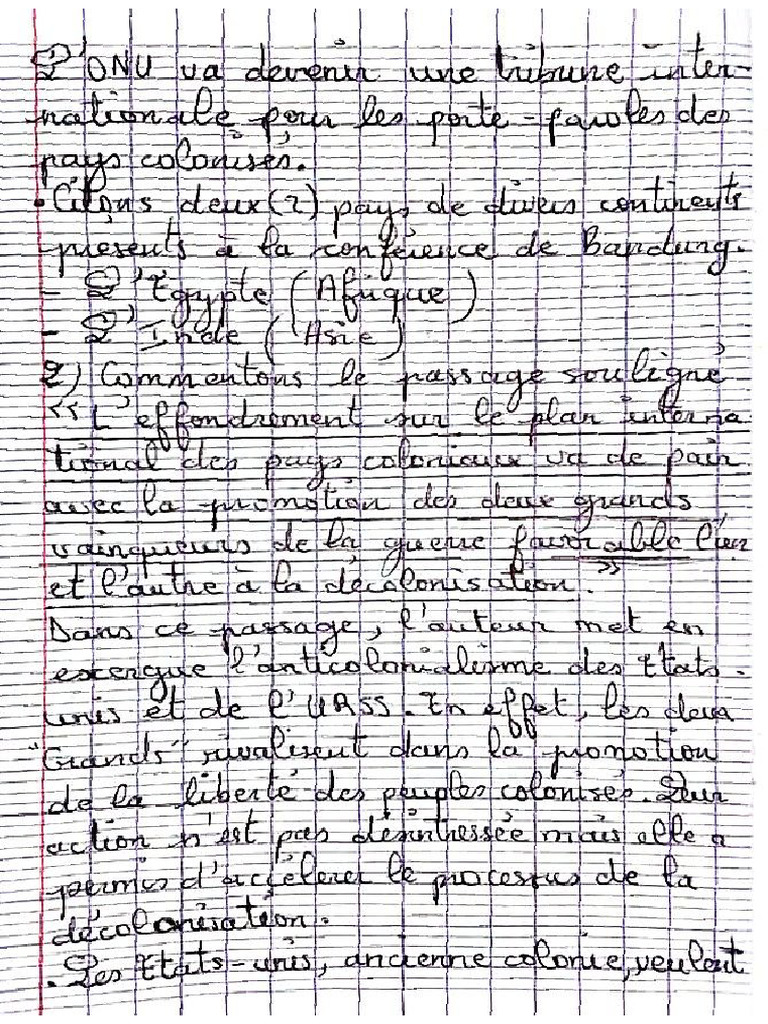 L'ONU va devenir une tribune inter-
nationale pour les porte-paroles des
pays colonisés.
• Citons deux (2) pays de divers continents
présents à la conférence de Bandung.
- L'Egypte (Afrique)
- L'Inde (Asie)
2) Commentons le passage souligné
"L'effondrement sur le plan interna
tional des pays coloniaux va de pair
avec la promotion des deux grands
vainqueurs de la guerre favorable l'un
et l'autre à la décolonisation."
Dans ce passage, l'auteur met en
exergue l'anticolonialisme des Etats-
unis et de l'URSS. En effet, les deux
"Grands" rivalisent dans la promotion
de la liberté des peuples colonisés. Leur
action n'est pas désintressée mais elle a
permis d'accélerer le processus de la
décolonisation.
. Les Etats-unis, ancienne colonie, veulent